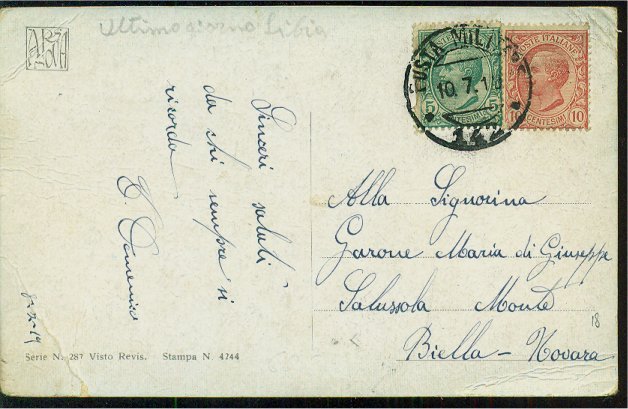 Ultimo giorno Libia
POSTE ITALIANE
5
5
CENTESIMI
POSTE ITALIANE
10
10
CENTESIMI
POSTA MILITARE
10.7.1
Sinceri saluti
da chi sempre si
ricorda
Domenico
Alla Signorina
Garone Maria di Giuseppe
Salussola Monte
Biella - Novara
18
Serie N. 287 Visto Revis. Stampa N. 4744